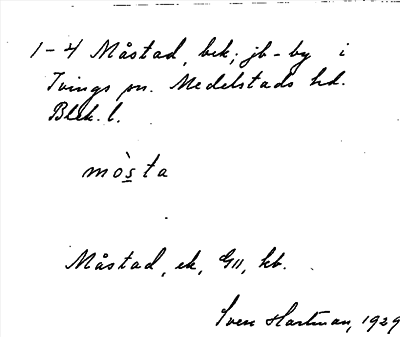 1-4 Måstad, bek; jb-by i
Tvings sn. Medelstads hd.
Blek. l.
mò̀s̲ta
Måstad, ek, GII, kb.
Sven Hartman, 1929